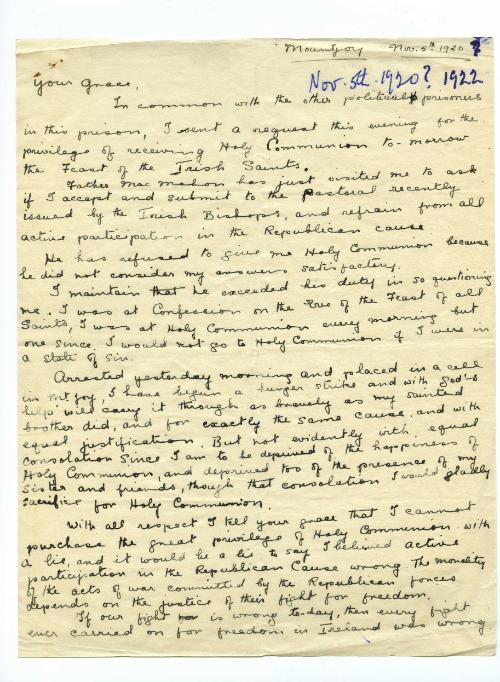 Mountjoy Nov. 5th 1920 ?
Nov. 5th 1920? 1922
Your Grace,
In common with the other political prisoners
in this prison, I sent a request this evening for the
privilege of receiving Holy Communion to-morrow
the Feast of the Irish Saints.
Father MacMahon has just visited me to ask
if I accept and submit to the Pastoral recently
issued by the Irish Bishops, and refrain from all
active participation in the Republican cause
He has refused to give me Holy Communion because
he did not consider my answers satisfactory.
I maintain that he exceeded his duty in so questioning
me. I was at Confession on the Eve of the Feast of all
Saints, I was at Holy Communion every morning but
one since. I would not go to Holy Communion if I were in
a state of sin.
Arrested yesterday morning and placed in a cell
in Mt Joy, I have begun a hunger strike and with God's
help will carry it through as bravely as my sainted
brother did, and for exactly the same cause, and with
equal justification. But not evidently with equal
consolation since I am to be deprived of the happiness of
Holy Communion, and deprived too of the presence of my
sister and friends, though that consolation I would gladly
sacrifice for Holy Communion.
With all respect I tell your grace that I cannot
purchase the great privilege of Holy Communion with
a lie, and it would be a lie to say I believed active
participation in the Republican Cause wrong. The morality
of the acts of war committed by the Republican forces
depends on the justice of their fight for freedom.
If our fight is wrong to-day, then every fight
ever carried on for freedom in Ireland was wrong